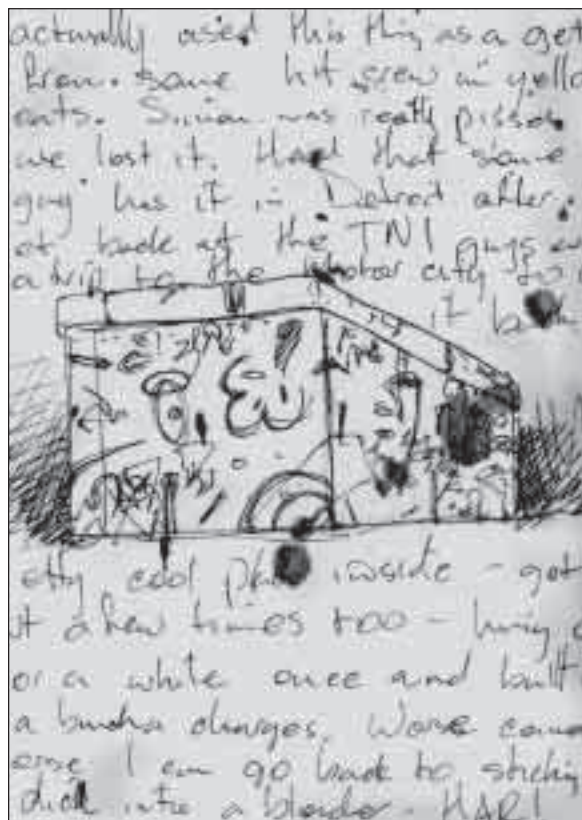 actually used this thing as a get
from some hit crew in yello
Simon was really pissed
we lost it. Heard that some
guy has it in Detroit after
at back at the TNI guys
a trip to the Motor city to
it back
etty cool place inside - got
t a few times too - hung
or a while once and built
a buncha charges. Worse comes
orse I can go back to sticking
dick into a blender - HAR!